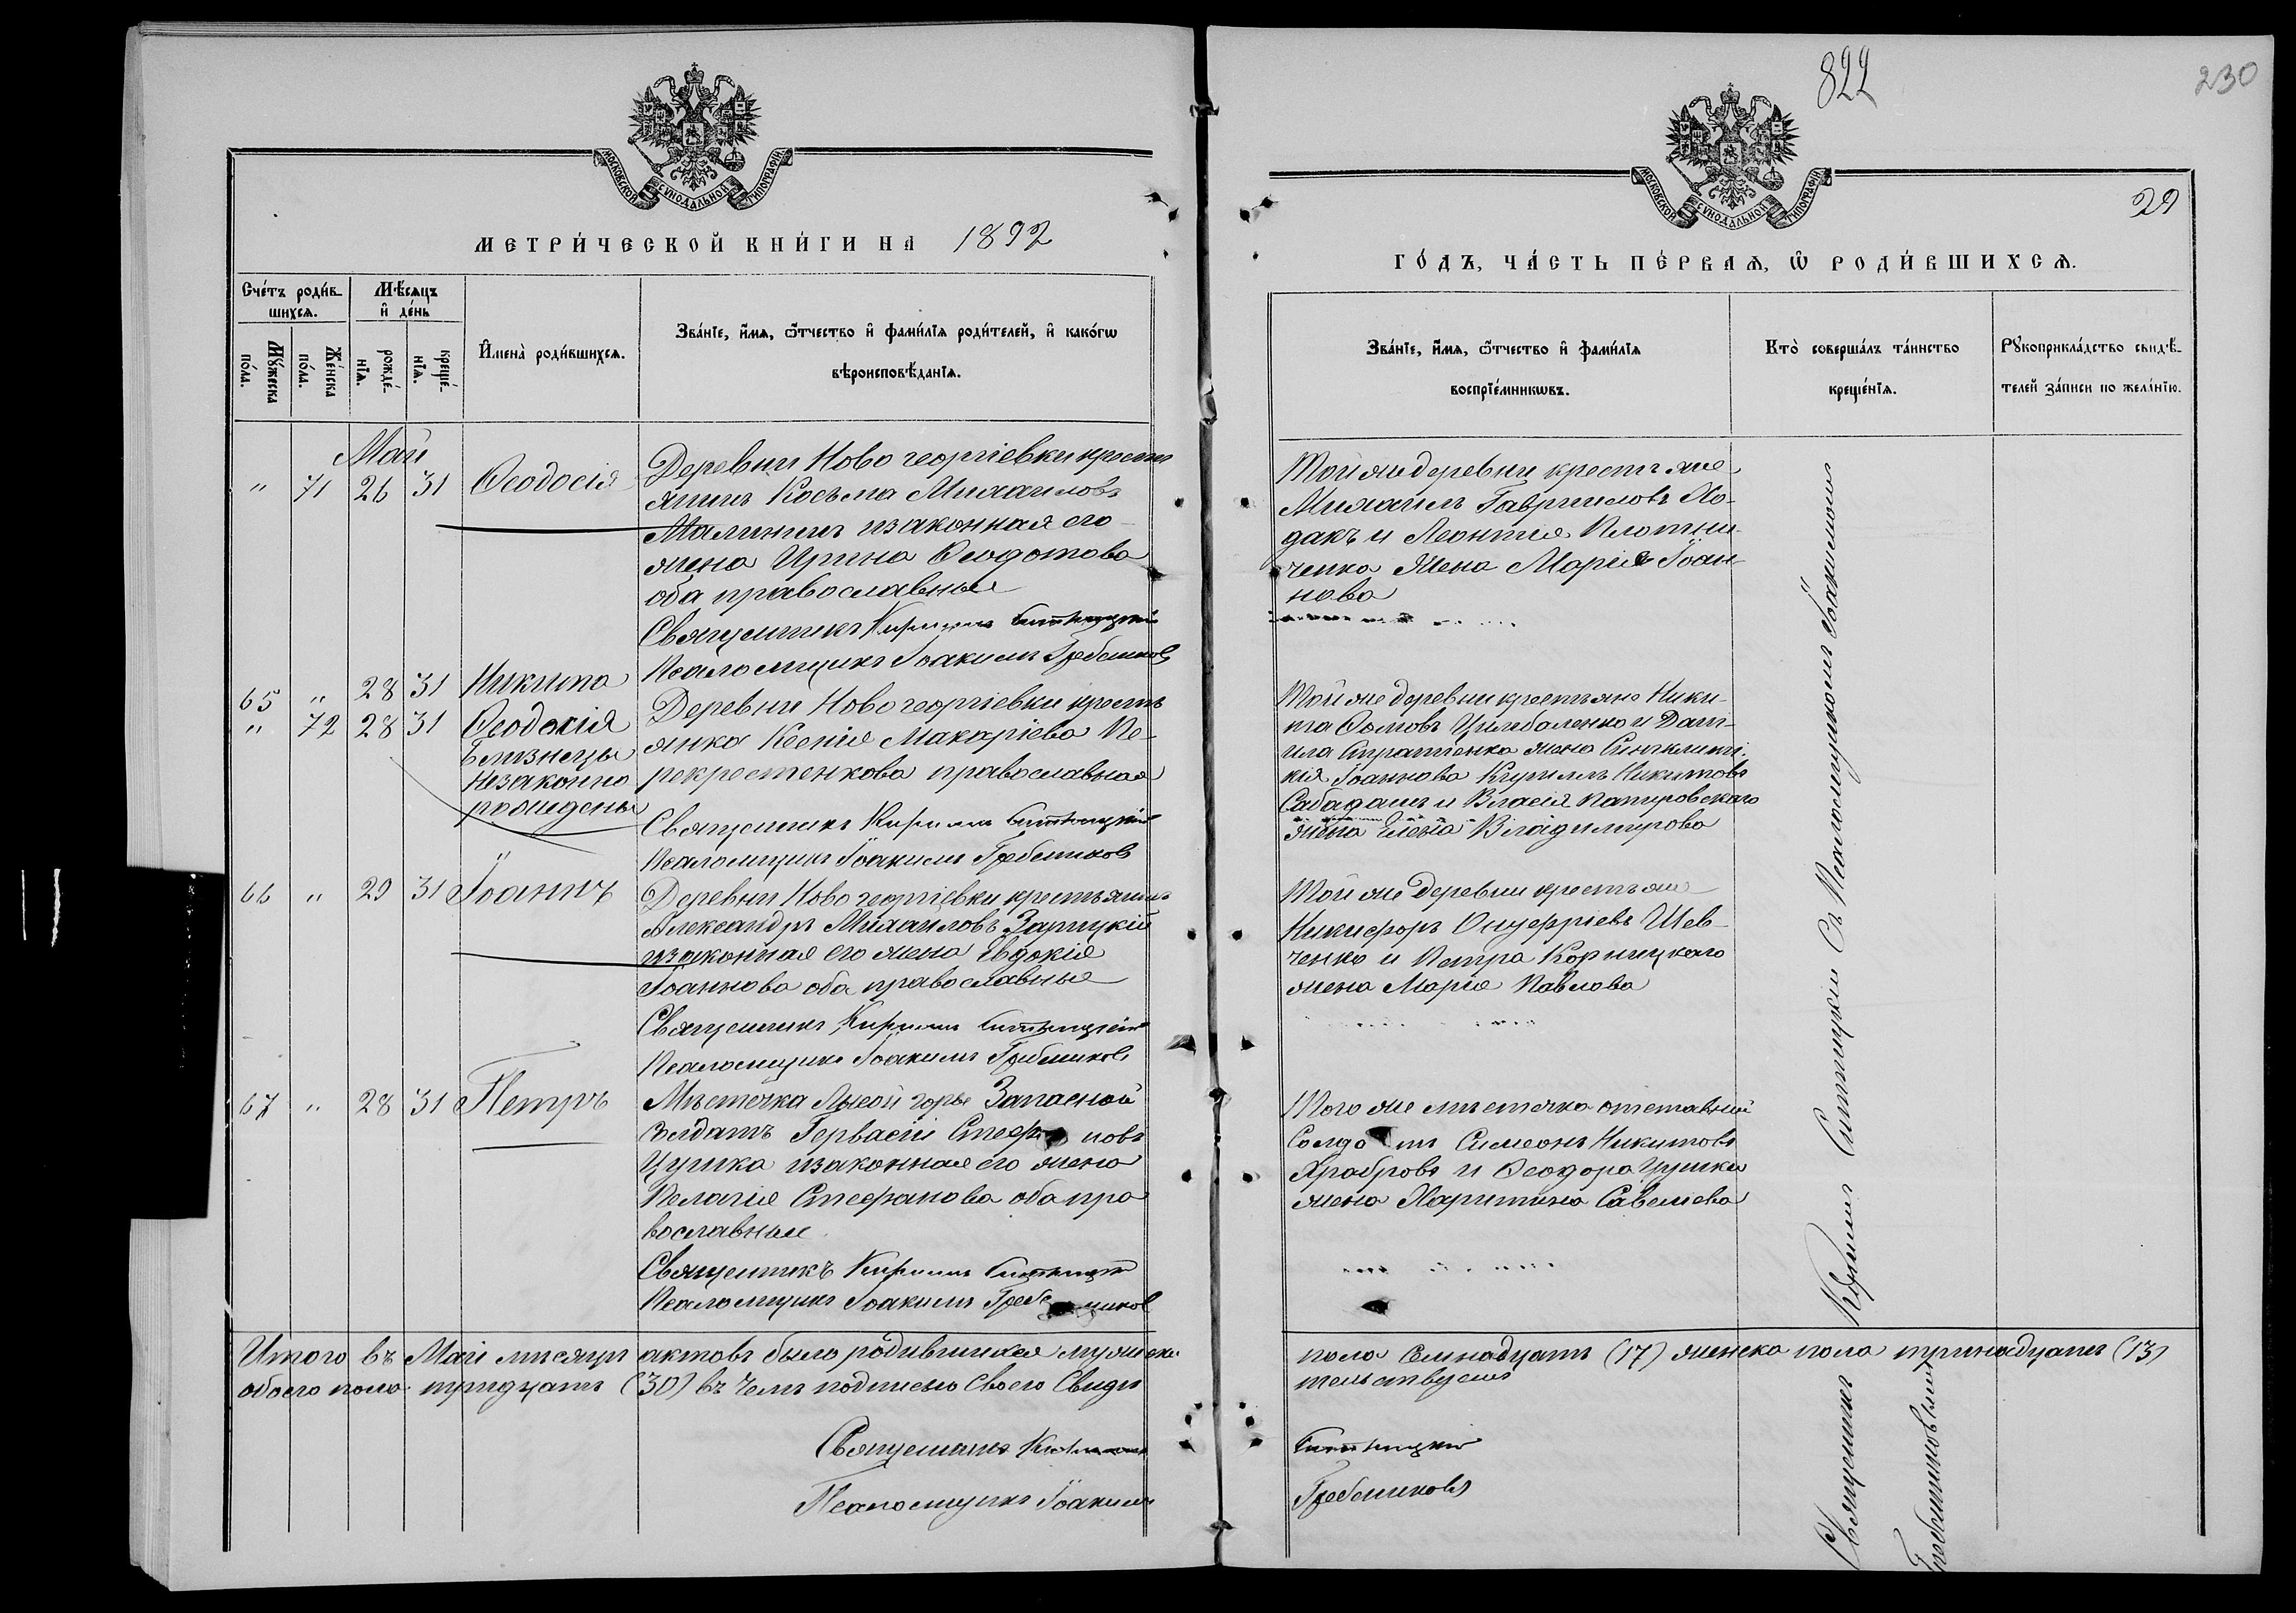 822
230
29
МОСКОВСКОЙ СѴНОДАЛЬНОЙ ТИПОГРАФІИ
МОСКОВСКОЙ СѴНОДАЛЬНОЙ ТИПОГРАФІИ
МЕТРИ́ЧЕСКОЙ КНИ́ГИ НА 1892
ГО́ДЪ, ЧА́СТЬ ПЕ́РВАѦ, Ѽ РОДИ́ВШИХСѦ.
Сче́тъ роди́в-
шихсѧ.
Мꙋ́жеска по́ла.
Же́нска по́ла.
Мѣ́сяцъ
и҆ де́нь
рожде́-
нїѧ.
креще́-
нїѧ.
И҆мена̀ роди́вшихсѧ.
Зва́нїе, и҆́мѧ, ѻ҆́тчество и҆ фами́лїѧ роди́телей, и҆ како́гѡ
вѣроисповѣ́данїѧ.
Зва́нїе, и҆́мѧ, ѻ҆́тчество и҆ фами́лїѧ
воспрїе́мникѡвъ.
Кто̀ соверша́лъ та́инство
креще́нїѧ.
Рꙋкоприкла́дство свидѣ́-
телей за́писи по жела́нїю.
Май
" 71 26 31 Ѳеодосія
Деревни Ново георгіевки кресть
янинъ Косьма Михаиловъ
Малининъ и законная его
жена Ирина Ѳеодотова
оба православные
Священникъ Кириллъ
Псаломщикъ Іоакимъ Гребенниковъ
Той же деревни крестьяне
Михаилъ Гавріиловъ Хо-
дакъ и Леонтія Плотни-
ченка жена Марія Іоан-
нова
65 " 28 31 Никита
" 72 28 31 Ѳеодосія
Близнецы
незаконно
рождены
Деревни Ново георгіевки кресть
янка Ксенія Макаріева Пе-
рекрестенкова православная
Священникъ Кириллъ
Псаломщикъ Іоакимъ Гребенниковъ
Той же деревни крестьяне Ники-
та Цимбаленко и Дани-
ила жена Синклити-
кія Іоаннова Кириллъ Никитовъ
Сабадашъ и Власія Папировскаго
жена Елена Владимирова
66 " 29 31 Іоаннъ
Деревни Ново георгіевки крестьянинъ
Александръ Михаиловъ Зарицкій
и законная его жена Евдокія
Іоаннова оба православные
Священникъ Кириллъ
Псаломщикъ Іоакимъ Гребенниковъ
Той же деревни крестьяне
Никифоръ Онуфріевъ Шев-
ченко и Петра Корницкаго
жена Марія Павлова
67 " 28 31 Петръ
Мѣстечка Лысой горы Запасной
Солдатъ Гервасій Стефановъ
Цушка и законная его жена
Пелагія Стефанова оба пра
вославные
Священникъ Кириллъ
Псаломщикъ Іоакимъ Гребенниковъ
Того же мѣстечка отставный
Солдатъ Симеонъ Никитовъ
Храбровъ и Ѳеодора Цушки
жена Харитина Савельева
Священникъ Кириллъ Съ Псаломщикомъ Іоакимомъ
Гребенниковымъ
Итого въ Маѣ мѣсяцѣ актовъ было родившихся мужеска пола семнадцать (17) женска пола тринадцать (13)
обоего пола тридцать (30) въ чемъ подписью своею свидѣтельствуемъ
Священникъ Кириллъ
Псаломщикъ Іоакимъ Гребенниковъ